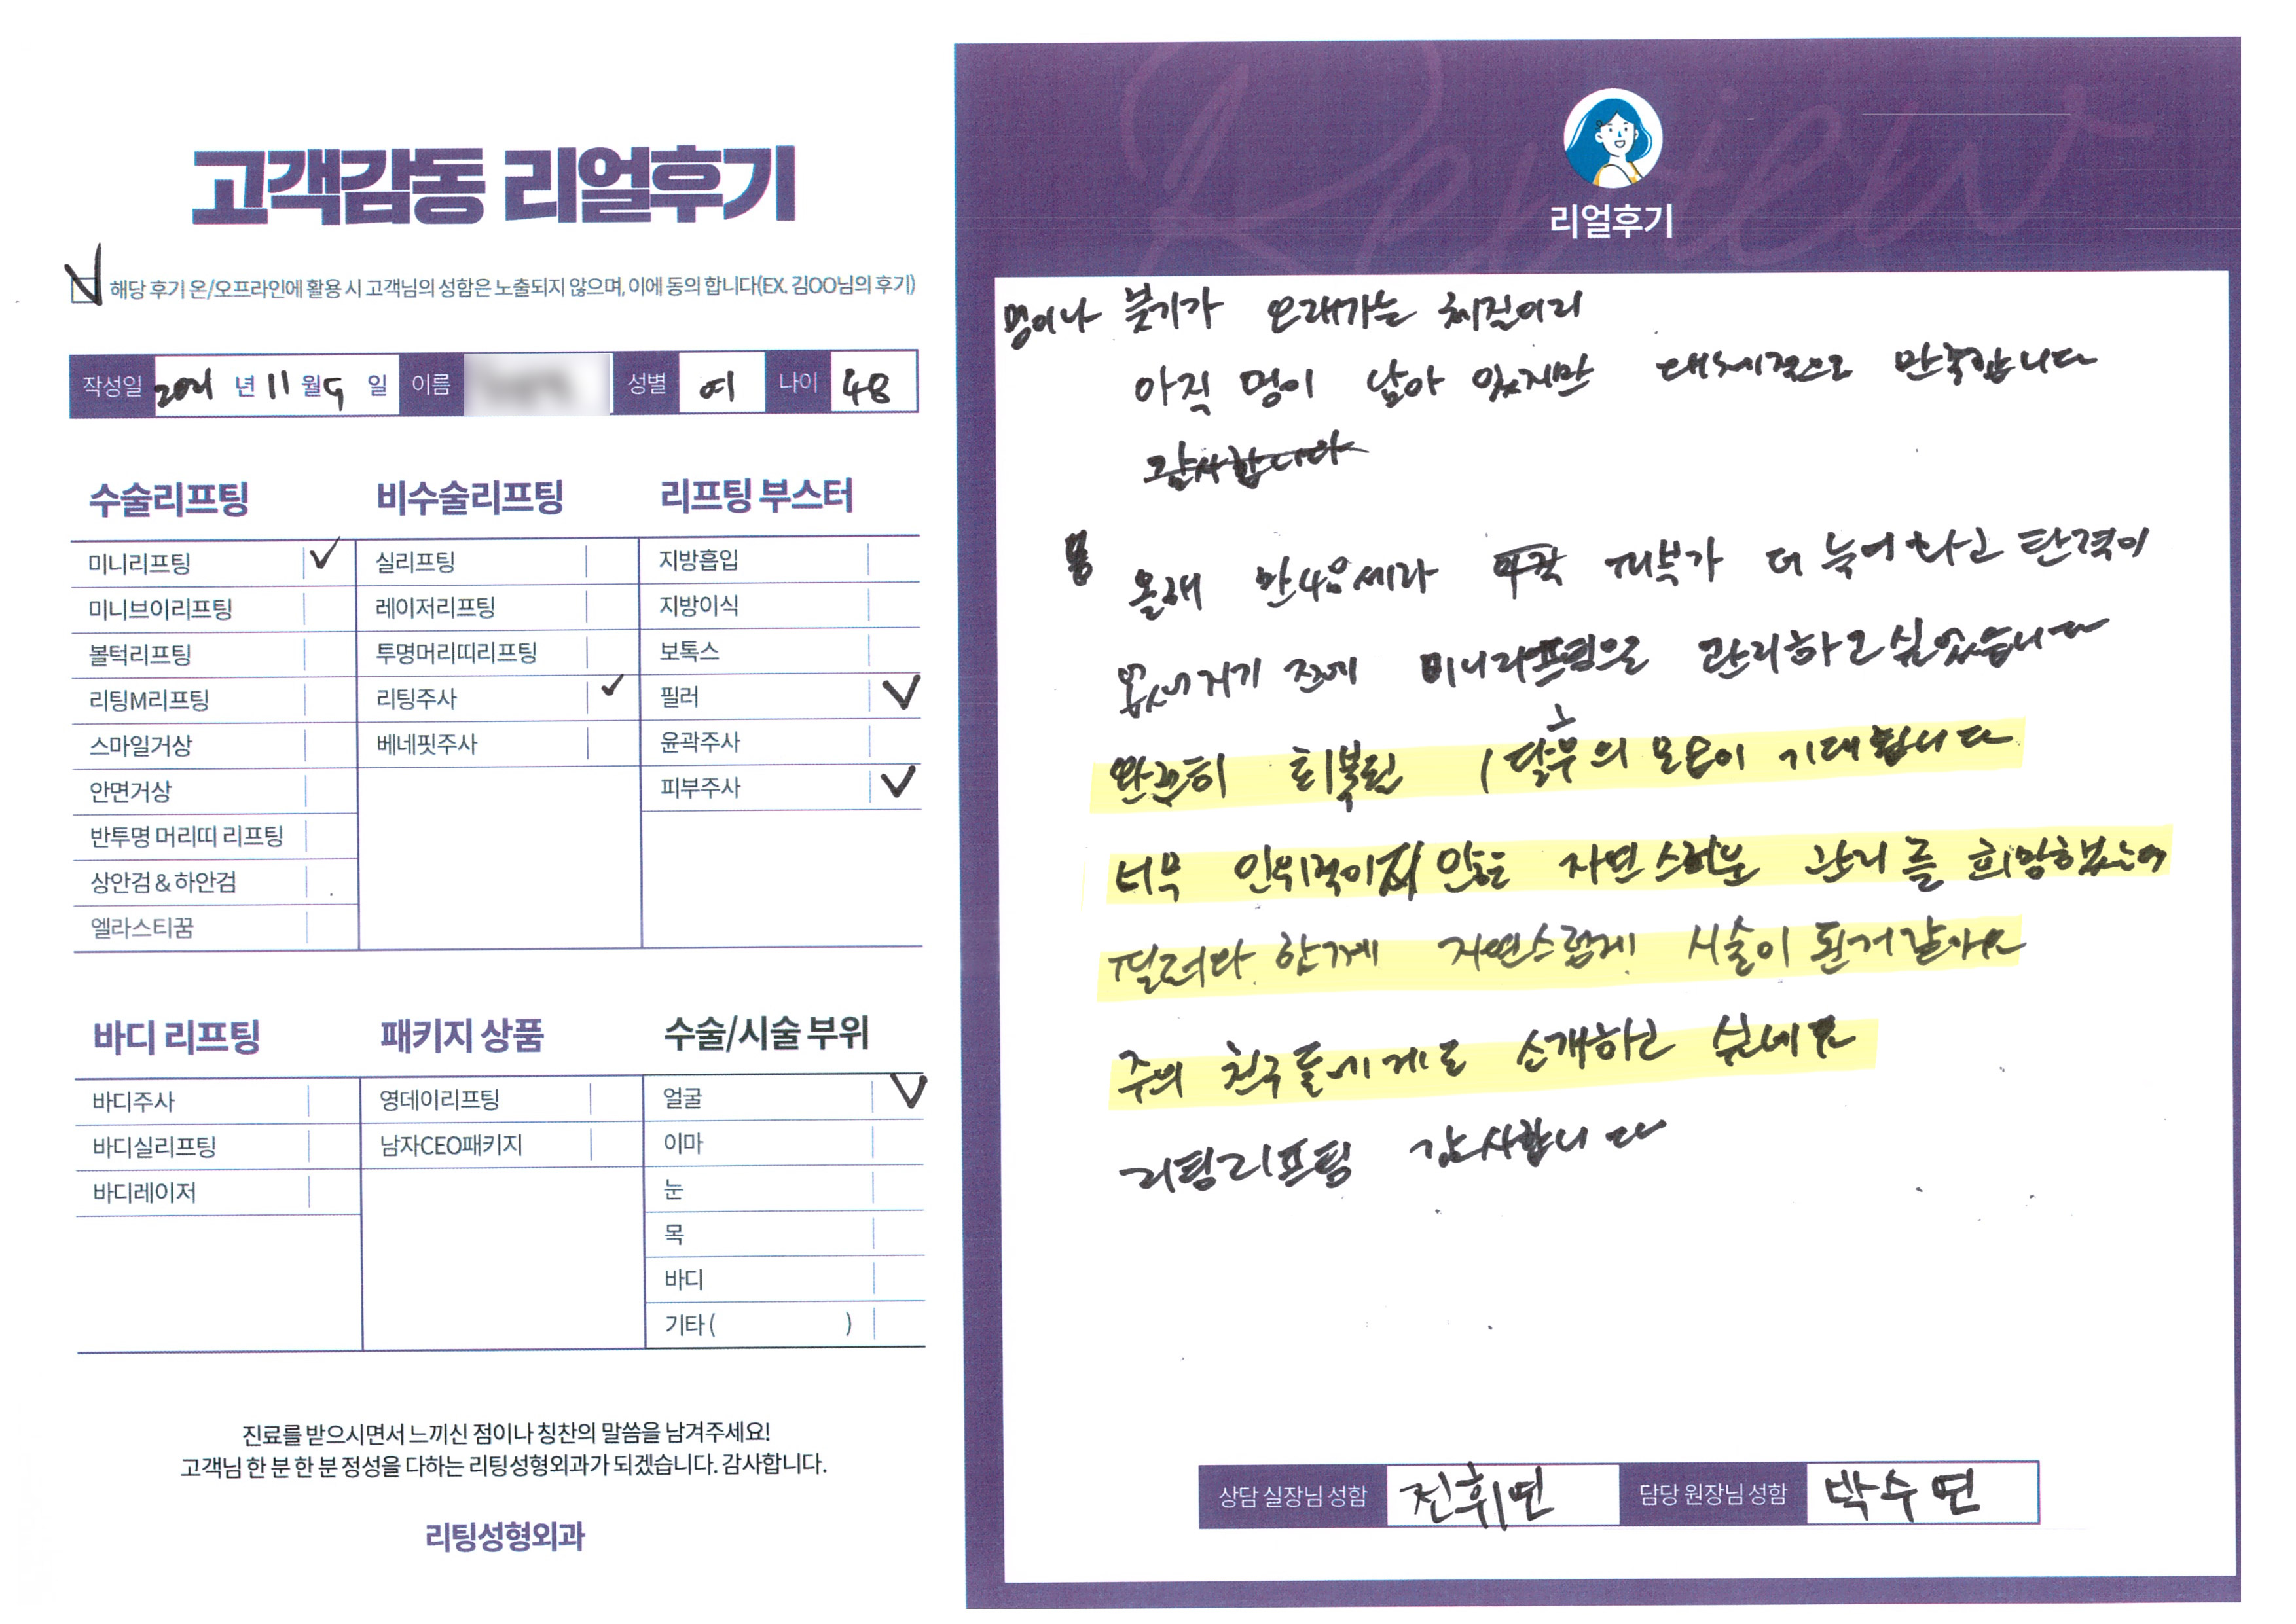 고객감동 리얼후기
해당 후기 온/오프라인에 활용 시 고객님의 성함은 노출되지 않으며, 이에 동의 합니다(EX. 김OO님의 후기)
작성일 2021 년 11 월 9 일 이름 성별 여 나이 48
수술리프팅
미니리프팅 ✓
미니브이리프팅
볼턱리프팅
리팅M리프팅
스마일거상
안면거상
반투명 머리띠 리프팅
상안검 & 하안검
엘라스티꿈
비수술리프팅
실리프팅
레이저리프팅
투명머리띠리프팅
리팅주사 ✓
베네핏주사
리프팅 부스터
지방흡입
지방이식
보톡스
필러 ✓
윤곽주사
피부주사 ✓
바디 리프팅
바디주사
바디실리프팅
바디레이저
패키지 상품
영데이리프팅
남자CEO패키지
수술/시술 부위
얼굴 ✓
이마
눈
목
바디
기타 ( )
진료를 받으시면서 느끼신 점이나 칭찬의 말씀을 남겨주세요!
고객님 한 분 한 분 정성을 다하는 리팅성형외과가 되겠습니다. 감사합니다.
리팅성형외과
Review
리얼후기
멍이나 붓기가 오래가는 체질이라
아직 멍이 남아 있지만 대체적으로 만족합니다
감사합니다
올해 만48세라 피부가 더 늙어지고 탄력이
없어지기 전에 미니리프팅으로 관리하고싶었습니다
완전히 회복된 1달후의 모습이 기대됩니다
너무 인위적이지 않은 자연스러운 관리를 희망했는데
필러와 함께 자연스럽게 시술이 된거같아요
주위 친구들에게도 소개하고 싶네요
리팅리프팅 감사합니다
상담 실장님 성함 진휘연 담당 원장님 성함 박수연